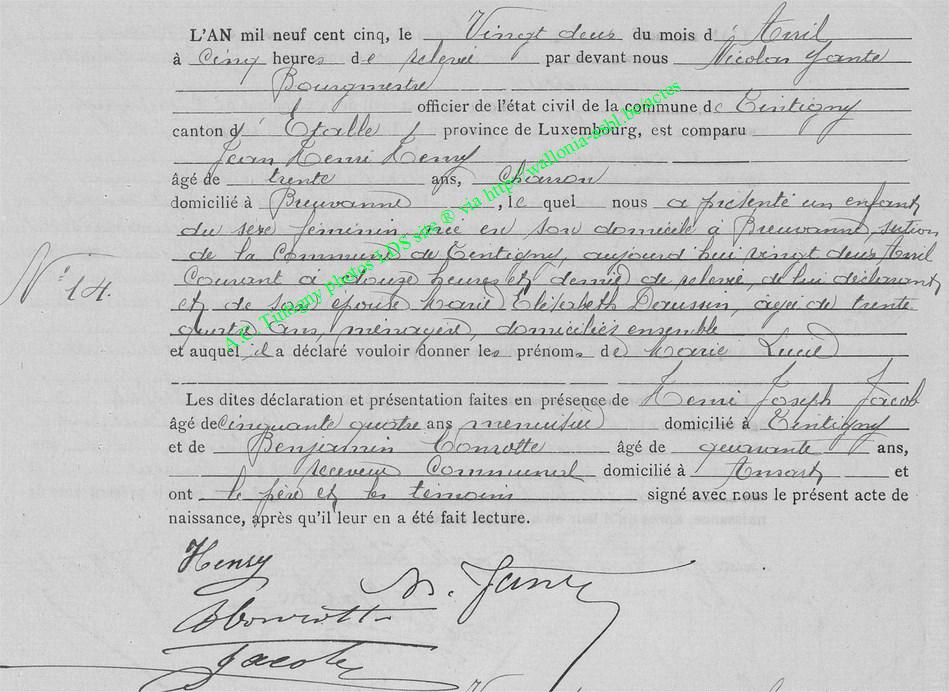 L'AN mil neuf cent cinq, le Vingt deux du mois d' Avril
à Cinq heures de relevée par devant nous Nicolas Jante
Bourgmestre
officier de l'état civil de la commune de Tintigny
canton d' Etalle province de Luxembourg, est comparu
Jean Henri Henry
âgé de trente ans, Charron
domicilié à Breuvanne, le quel nous a présenté un enfant
du sexe féminin née en son domicile à Breuvanne, section
de la Commune de Tintigny, aujourd hui vingt deux Avril
N° 14.
Courant à douze heures et demie de relevée, de lui déclarant
et de son épouse Marie Elisabeth Daussin, agée de trente
quatre ans, ménagère, domiciliés ensemble
et auquel il a déclaré vouloir donner les prénoms de Marie Lucie
Les dites déclaration et présentation faites en présence de Henri Joseph Jacob
âgé de cinquante quatre ans menuisier domicilié à Tintigny
et de Benjamin Conrotte âgé de quarante ans,
receveur Communal domicilié à Ansart et
ont le père et les témoins signé avec nous le présent acte de
naissance, après qu'il leur en a été fait lecture.
Henry
N. Jante
BConrotte
Jacob
A.C. Tintigny photos LDS site ® via http://wallonia-asbl.be/actes